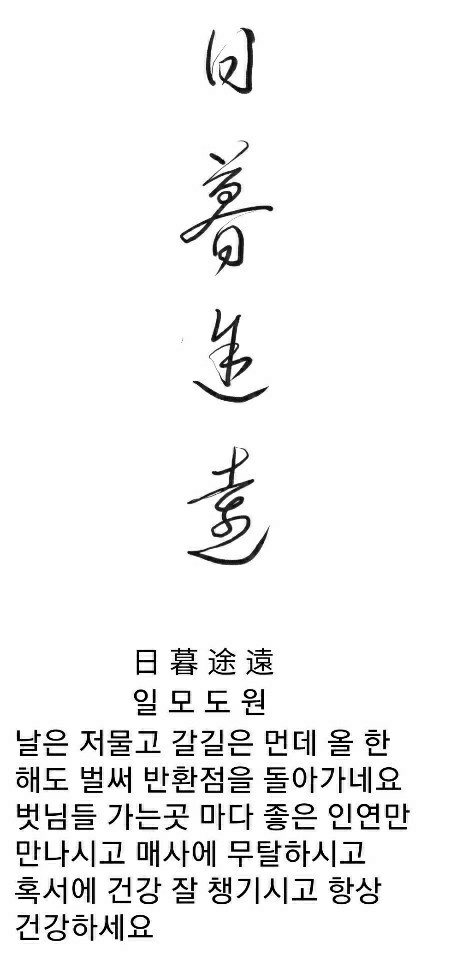 日
暮
途
遠
日 暮 途 遠
일 모 도 원
날은 저물고 갈길은 먼데 올 한
해도 벌써 반환점을 돌아가네요
벗님들 가는곳 마다 좋은 인연만
만나시고 매사에 무탈하시고
혹서에 건강 잘 챙기시고 항상
건강하세요